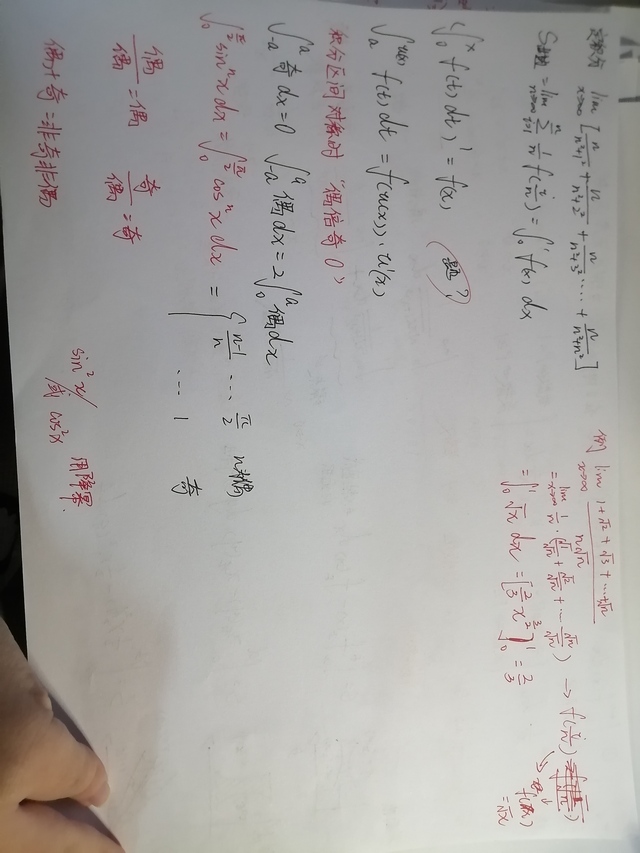 定积分 lim x→∞ [n/(n²+1²) + n/(n²+2²) + n/(n²+3²) … + n/(n²+n²)]
= lim n→∞ Σ i=1 n 1/n f(i/n) = ∫₀¹ f(x) dx
(∫₀ˣ f(t) dt)' = f(x) (题?)
∫ₐ^{u(x)} f(t) dt = f(u(x))·u'(x)
积分区间对称时 "偶倍奇0"
∫₋ₐᵃ 奇 dx = 0 ∫₋ₐᵃ 偶 dx = 2∫₀ᵃ 偶 dx
∫₀^{π/2} sinⁿx dx = ∫₀^{π/2} cosⁿx dx = { (n-1)/n … π/2 n为偶
… 1 奇
偶/偶 = 偶 奇/偶 = 奇
偶+奇 = 非奇非偶
sin²x/
或 cos²x 用降幂.
例 lim x→∞ (1+√2+√3+…+√n)/(n√n)
= lim x→∞ 1/n · (√1/√n + √2/√n + … √n/√n) → f(i/n)
= ∫₀¹ √x dx = [2/3 x^{3/2}]₀¹ = 2/3
= √x